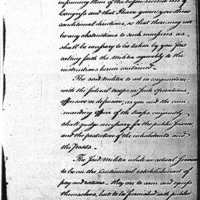 informing them of the before recited Act of
Congress and that I have given you these
conditional directions, so that there may not
be any obstructions to such measures as
shall be necessary to be taken by you for
calling forth the Militia agreeably to the
instructions herein contained.
The said militia to act in conjunction
with the federal troops in such operations
offensive or defensive, as you and the com-
manding officer of the troops conjointly
shall judge necessary for the public service
and the protection of the inhabitants and
the Posts.
The said Militia while in actual Service
to be on the Continental establishment of
pay and rations. They are to arm and equip
themselves, but to be furnished with public